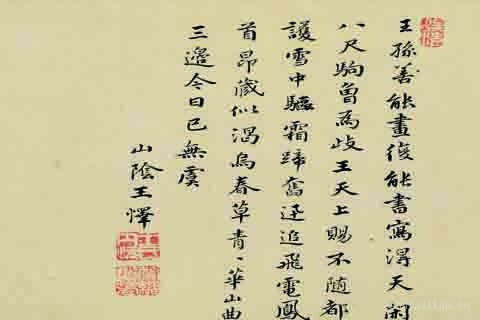 王孫善能畫復能書寫得天閑
八尺駒曾爲歧王天上賜不隨都
護雪中驅霜蹄奮迅追飛電鳳
首昂藏似渴烏春草青〻華山曲
三邊今日已無虞
山陰王懌